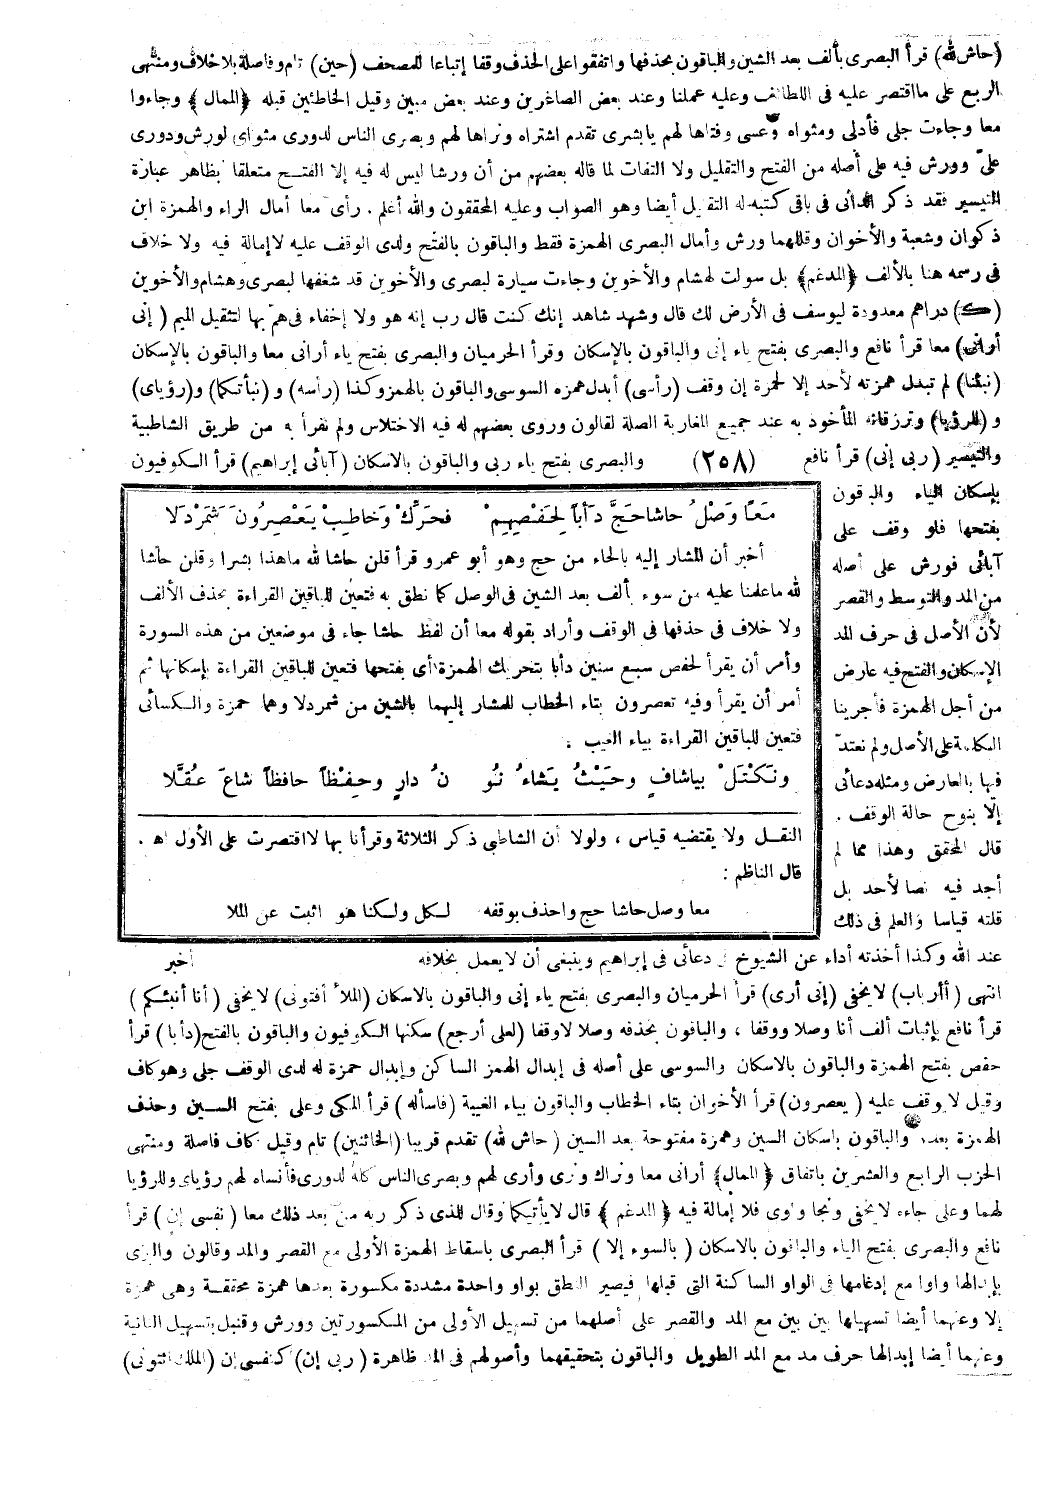 (حاش لله) قرأ البصرى بألف بعد الشين والباقون بحذفها واتفقوا على الحذف وقفا إتباعا للمصحف (حين) تام وفاصلة بلا خلاف ومنتهى
الربع على ما اقتصر عليه فى اللطائف وعليه عملنا وعند بعض الصاغرين وعند بعض مبين وقيل الخاطئين قبله ﴿الممال﴾ وجاءوا
معا وجاءت جلى فأدلى ومثواه وعسى وفتاها لهم يابشرى تقدم اشتراه ونراها لهم وبصرى الناس لدورى مثواى لورش ودورى
علىّ وورش فيه على أصله من الفتح والتقليل ولا التفات لما قاله بعضهم من أن ورشا ليس له فيه إلا الفتح متعلقا بظاهر عبارة
التيسير فقد ذكر الدانى فى باقى كتبه له التقليل أيضا وهو الصواب وعليه المحققون والله أعلم . رأى معا أمال الراء والهمزة ابن
ذكوان وشعبة والأخوان وقللهما ورش وأمال البصرى الهمزة فقط والباقون بالفتح ولدى الوقف عليه لا إمالة فيه ولا خلاف
فى رسمه هنا بالألف ﴿المدغم﴾ بل سولت لهشام والأخوين وجاءت سيارة لبصرى والأخوين قد شغفها لبصرى وهشام والأخوين
(ك) دراهم معدودة ليوسف فى الأرض لك قال وشهد شاهد إنك كنت قال رب إنه هو ولا إخفاء فى هم بها لتثقيل الميم (إنى
أرانى) معا قرأ نافع والبصرى بفتح ياء إنى والباقون بالإسكان وقرأ الحرميان والبصرى بفتح ياء أرانى معا والباقون بالإسكان
(نبئنا) لم تبدل همزته لأحد إلا لحمزة إن وقف (رأسى) أبدل همزه السوسى والباقون بالهمز وكذا (رأسه) و (نبأتكما) و(رؤياى)
و (للرؤيا) وترزقانه المأخوذ به عند جميع المغاربة الصلة لقالون وروى بعضهم له فيه الاختلاس ولم نقرأ به من طريق الشاطبية
والتيسير (ربى إنى) قرأ نافع (٢٥٨) والبصرى بفتح ياء ربى والباقون بالاسكان (آبائى إبراهيم) قرأ الكوفيون
بإسكان الياء والباقون
بفتحها فلو وقف على
آبائى فورش على أصله
من المد والتوسط والقصر
لأن الأصل فى حرف المد
الإسكان والفتح فيه عارض
من أجل الهمزة فأجرينا
الكلمة على الأصل ولم نعتدّ
فيها بالعارض ومثله دعائى
إلا بنوح حالة الوقف .
قال المحقق وهذا مما لم
أجد فيه نصا لأحد بل
قلته قياسا والعلم فى ذلك
معًا وَصْلُ حاشا حَجَّ دَأْبًا لِحَفْصِهِمْ فَحَرِّكْ وَخَاطِبْ يَعْصِرُونَ شَمَرْدَلَا
أخبر أن المشار إليه بالحاء من حج وهو أبو عمرو قرأ قلن حاشا لله ماهذا بشرا وقلن حاشا
لله ماعلمنا عليه من سوء بألف بعد الشين فى الوصل كما نطق به فتعين للباقين القراءة بحذف الألف
ولا خلاف فى حذفها فى الوقف وأراد بقوله معا أن لفظ حاشا جاء فى موضعين من هذه السورة
وأمر أن يقرأ لحفص سبع سنين دأبا بتحريك الهمزة أى بفتحها فتعين للباقين القراءة بإسكانها ثم
أمر أن يقرأ وفيه تعصرون بتاء الخطاب للمشار إليهما بالشين من شمردلا وهما حمزة والكسائى
فتعين للباقين القراءة بياء الغيب .
وَنَكْتَلْ بِيَا شَافٍ وَحَيْثُ يَشَاءُ نُو نُ دَارٍ وَحِفْظًا حَافِظًا شَاعَ عُقَّلَا
النقل ولا يقتضيه قياس ، ولولا أن الشاطبى ذكر الثلاثة وقرأنا بها لااقتصرت على الأول اه .
قال الناظم :
معا وصل حاشا حج واحذف بوقفه لكل ولكنا هو اثبت عن الملا
عند الله وكذا أخذته أداء عن الشيوخ فى دعائى فى إبراهيم وينبغى أن لايعمل بخلافه أخبر
انتهى (أأرباب) لايخفى (إنى أرى) قرأ الحرميان والبصرى بفتح ياء إنى والباقون بالاسكان (الملأ أفتونى) لايخفى (أنا أنبئكم)
قرأ نافع بإثبات ألف أنا وصلا ووقفا ، والباقون بحذفه وصلا لاوقفا (لعلى أرجع) سكنها الكوفيون والباقون بالفتح (دأبا) قرأ
حفص بفتح الهمزة والباقون بالاسكان والسوسى على أصله فى إبدال الهمز الساكن وإبدال حمزة له لدى الوقف جلى وهو كاف
وقيل لا وقف عليه (يعصرون) قرأ الأخوان بتاء الخطاب والباقون بياء الغيبة (فاسأله) قرأ المكى وعلى بفتح السين وحذف
الهمزة بعده والباقون باسكان السين وهمزة مفتوحة بعد السين (حاش لله) تقدم قريبا (الخائنين) تام وقيل كاف فاصلة ومنتهى
الحزب الرابع والعشرين باتفاق ﴿الممال﴾ أرانى معا ونراك ونرى وأرى لهم وبصرى الناس كله لدورى فأنساه لهم رؤياى وللرؤيا
لهما وعلى جاءه لايخفى ونجا واوى فلا إمالة فيه ﴿المدغم﴾ قال لايأتيكما وقال للذى ذكر ربه من بعد ذلك معا (نفسى إن) قرأ
نافع والبصرى بفتح الياء والباقون بالاسكان (بالسوء إلا) قرأ البصرى باسقاط الهمزة الأولى مع القصر والمد وقالون والبزى
بإبدالها واوا مع إدغامها فى الواو الساكنة التى قبلها فيصير النطق بواو واحدة مشددة مكسورة بعدها همزة محققة وهى همزة
إلا وعنهما أيضا تسهيلها بين بين مع المد والقصر على أصلهما من تسهيل الأولى من المكسورتين وورش وقنبل بتسهيل الثانية
وعنهما أيضا إبدالها حرف مد مع المد الطويل والباقون بتحقيقهما وأصولهم فى المد ظاهرة (ربى إن) كنفسى إن (الملك ائتونى)